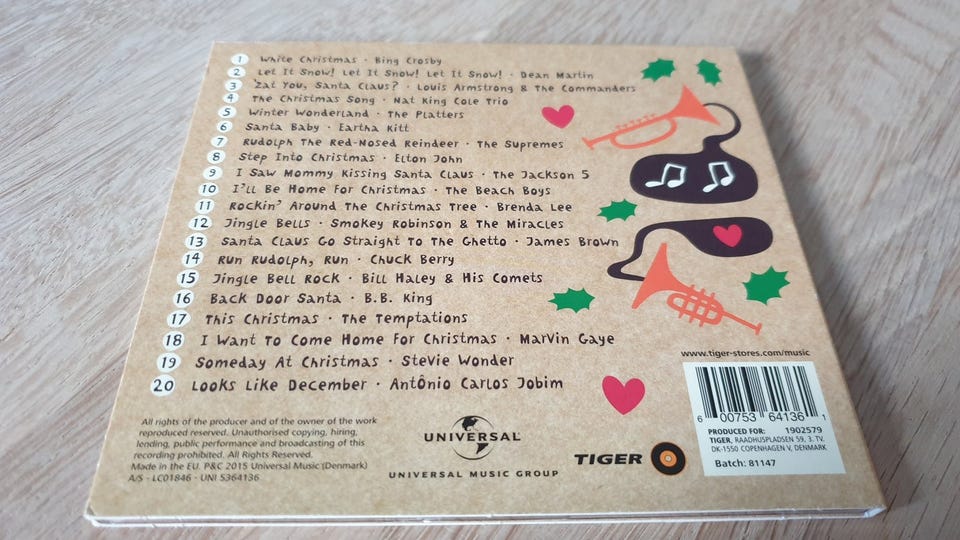 1 White Christmas · Bing Crosby
2 Let It Snow! Let It Snow! Let It Snow! · Dean Martin
3 'Zat You, Santa Claus? · Louis Armstrong & The Commanders
4 The Christmas Song · Nat King Cole Trio
5 Winter Wonderland · The Platters
6 Santa Baby · Eartha Kitt
7 Rudolph The Red-Nosed Reindeer · The Supremes
8 Step Into Christmas · Elton John
9 I Saw Mommy Kissing Santa Claus · The Jackson 5
10 I'll Be Home For Christmas · The Beach Boys
11 Rockin' Around The Christmas Tree · Brenda Lee
12 Jingle Bells · Smokey Robinson & The Miracles
13 Santa Claus Go Straight To The Ghetto · James Brown
14 Run Rudolph, Run · Chuck Berry
15 Jingle Bell Rock · Bill Haley & His Comets
16 Back Door Santa · B.B. King
17 This Christmas · The Temptations
18 I Want To Come Home For Christmas · Marvin Gaye
19 Someday At Christmas · Stevie Wonder
20 Looks Like December · Antônio Carlos Jobim
www.tiger-stores.com/music
All rights of the producer and of the owner of the work
reproduced reserved. Unauthorised copying, hiring,
lending, public performance and broadcasting of this
recording prohibited. All Rights Reserved.
Made in the EU. P&C 2015 Universal Music (Denmark)
A/S · LC01846 · UNI 5364136
UNIVERSAL
UNIVERSAL MUSIC GROUP
TIGER
6 00753 64136 1
PRODUCED FOR: 1902579
TIGER, RAADHUSPLADSEN 59, 3. TV.
DK-1550 COPENHAGEN V, DENMARK
Batch: 81147